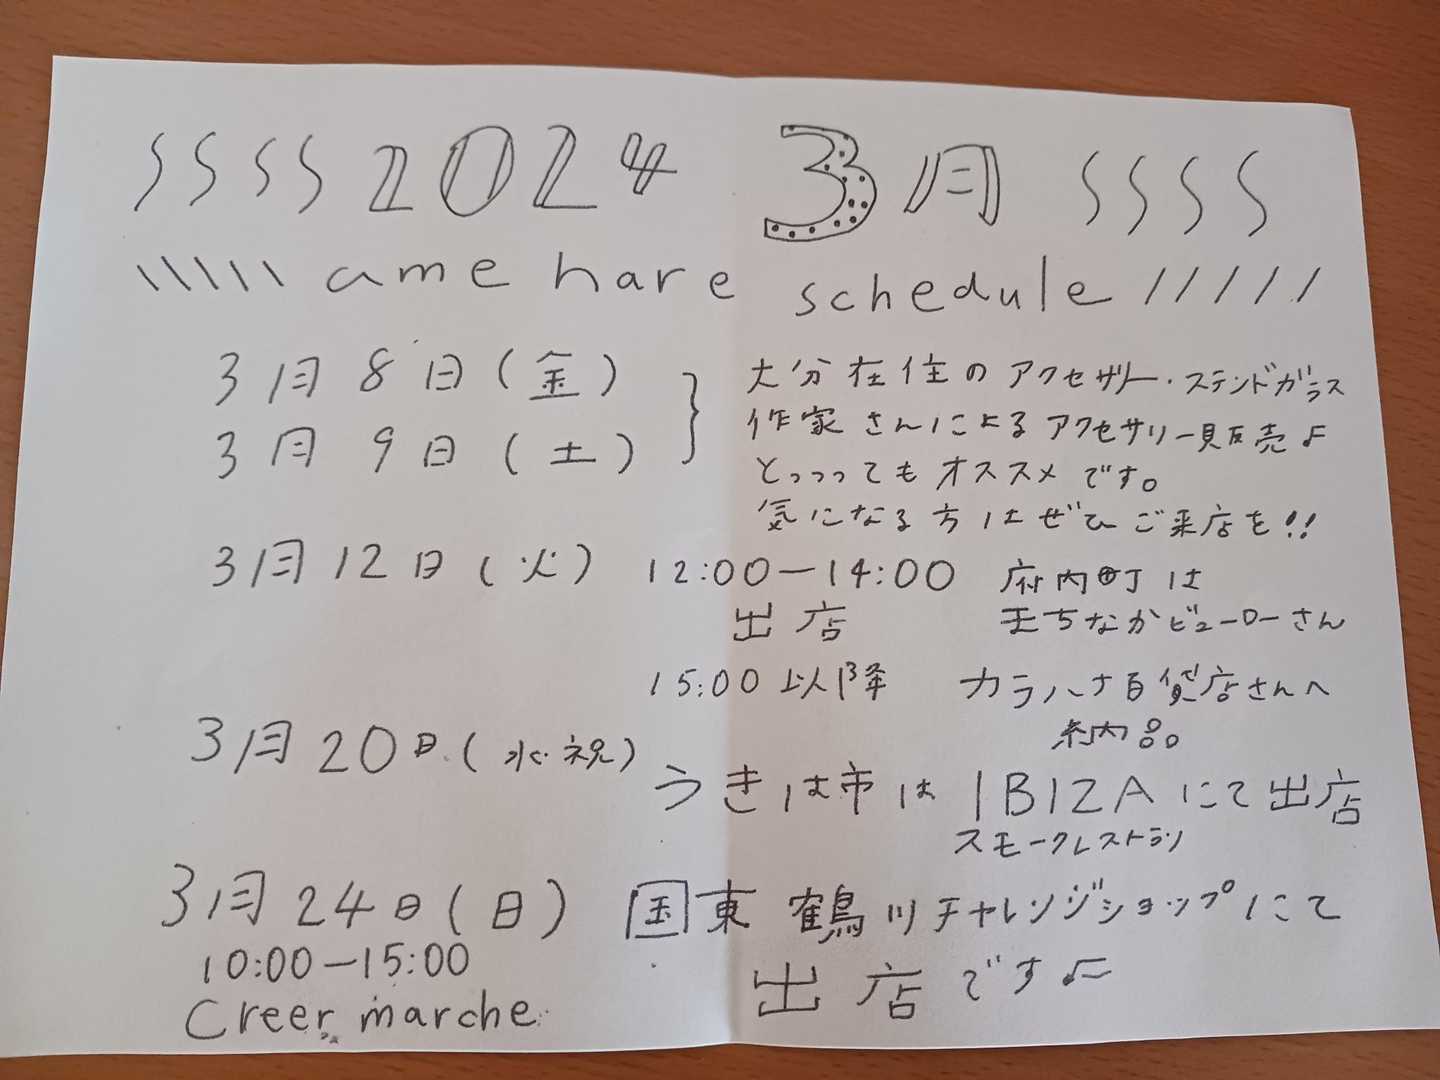 2024 3月
ame hare schedule
3月8日(金)
3月9日(土)
大分在住のアクセサリー・ステンドガラス
作家さんによるアクセサリー販売♪
とっっってもオススメです。
気になる方はぜひご来店を!!
3月12日(火) 12:00ー14:00 府内町は
出店 まちなかビューローさん
15:00以降 カラハナ百貨店さんへ
納品。
3月20日(水祝)
うきは市はIBIZAにて出店
スモークレストラン
3月24日(日) 国東鶴川チャレンジショップにて
10:00ー15:00 出店です♫
Creer marche